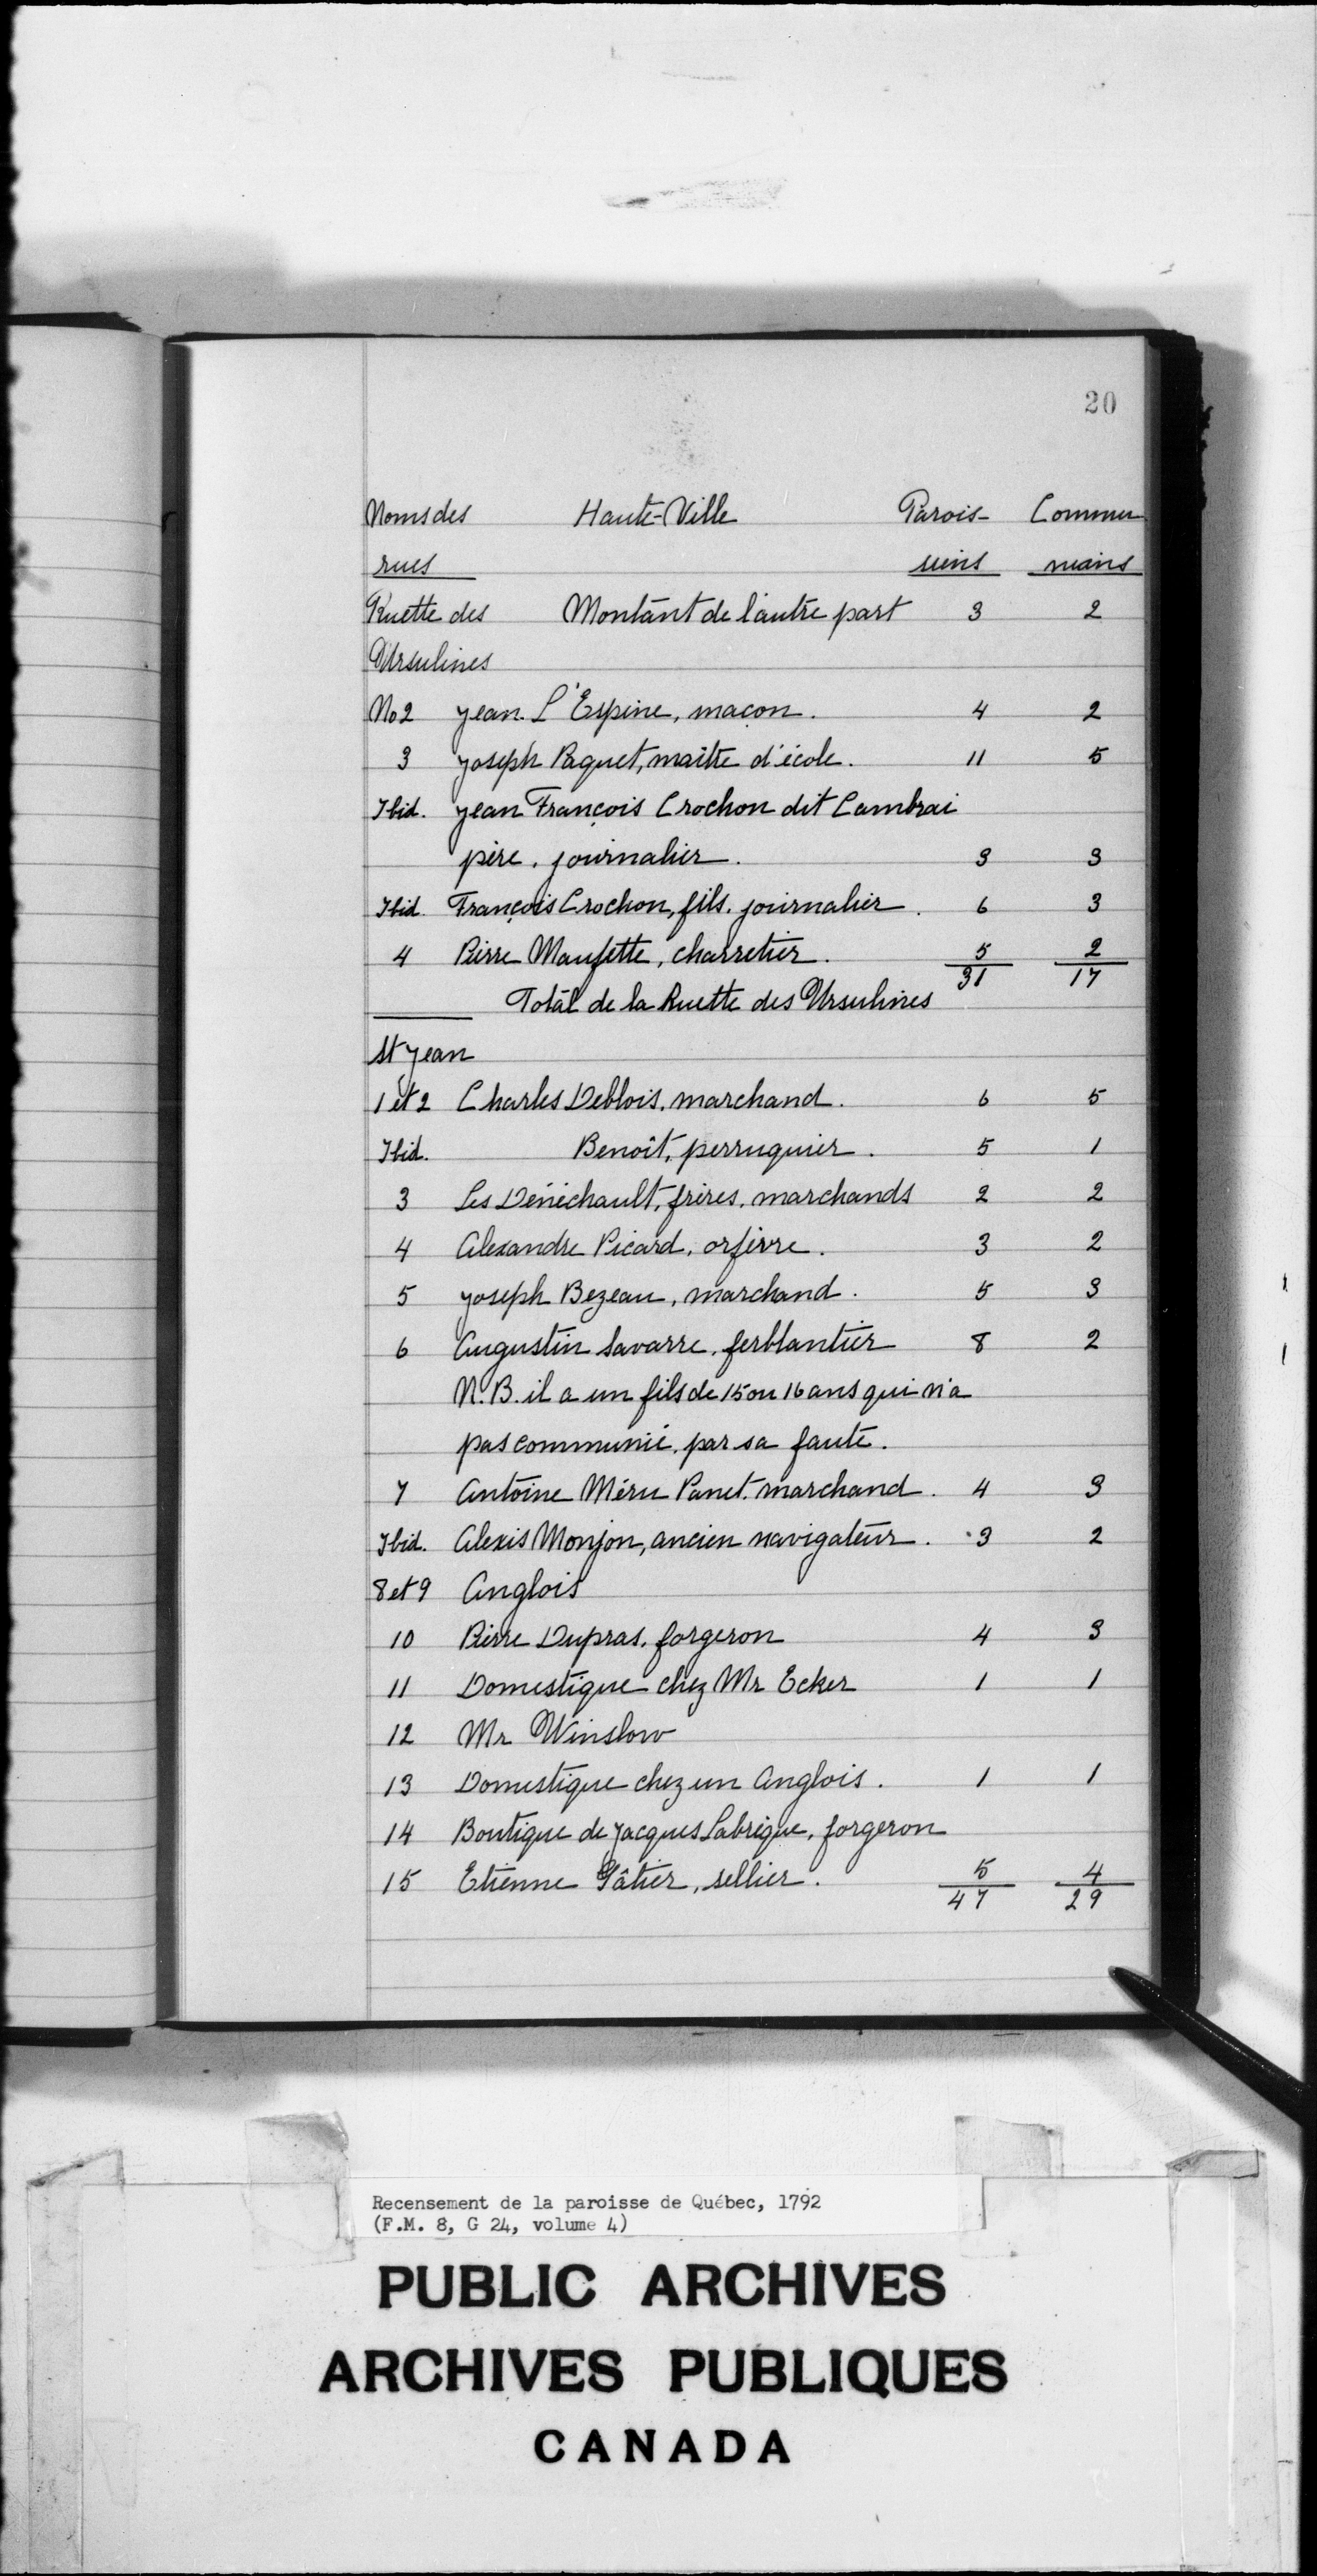 20
Noms des Haute-Ville Parois- Commu
rues siens nians
Ruette des Montant de l'autre part 3 2
Ursulines
No 2 Jean L'Espine, maçon. 4 2
3 Joseph Paquet, maître d'école. 11 5
Ibid. Jean François Crochon dit Cambrai
père, journalier. 3 3
Ibid. François Crochon, fils, journalier. 6 3
4 Pierre Maufette, charretier. 5 2
31 17
Total de la Ruette des Ursulines
St Jean
1 et 2 Charles Deblois, marchand. 6 5
Ibid. Benoît, perruquier. 5 1
3 Les Dénéchault, frères, marchands 2 2
4 Alexandre Picard, orfèvre. 3 2
5 Joseph Bezeau, marchand. 5 3
6 Augustin Savarre, ferblantier 8 2
N.B. il a un fils de 15 ou 16 ans qui n'a
pas communié, par sa faute.
7 Antoine Méru Panet, marchand. 4 3
Ibid. Alexis Monjon, ancien navigateur. 3 2
8 et 9 Anglois
10 Pierre Dupras, forgeron 4 3
11 Domestique chez Mr Ecker 1 1
12 Mr Winslow
13 Domestique chez un Anglois. 1 1
14 Boutique de Jacques Labrèque, forgeron
15 Etienne Gâtier, sellier. 5 4
47 29
Recensement de la paroisse de Québec, 1792
(F.M. 8, G 24, volume 4)
PUBLIC ARCHIVES
ARCHIVES PUBLIQUES
CANADA